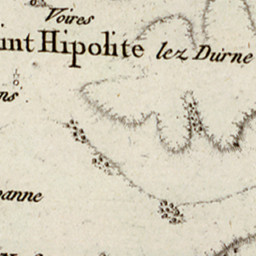 Voires
int Hipolite lez Durne
ns
anne